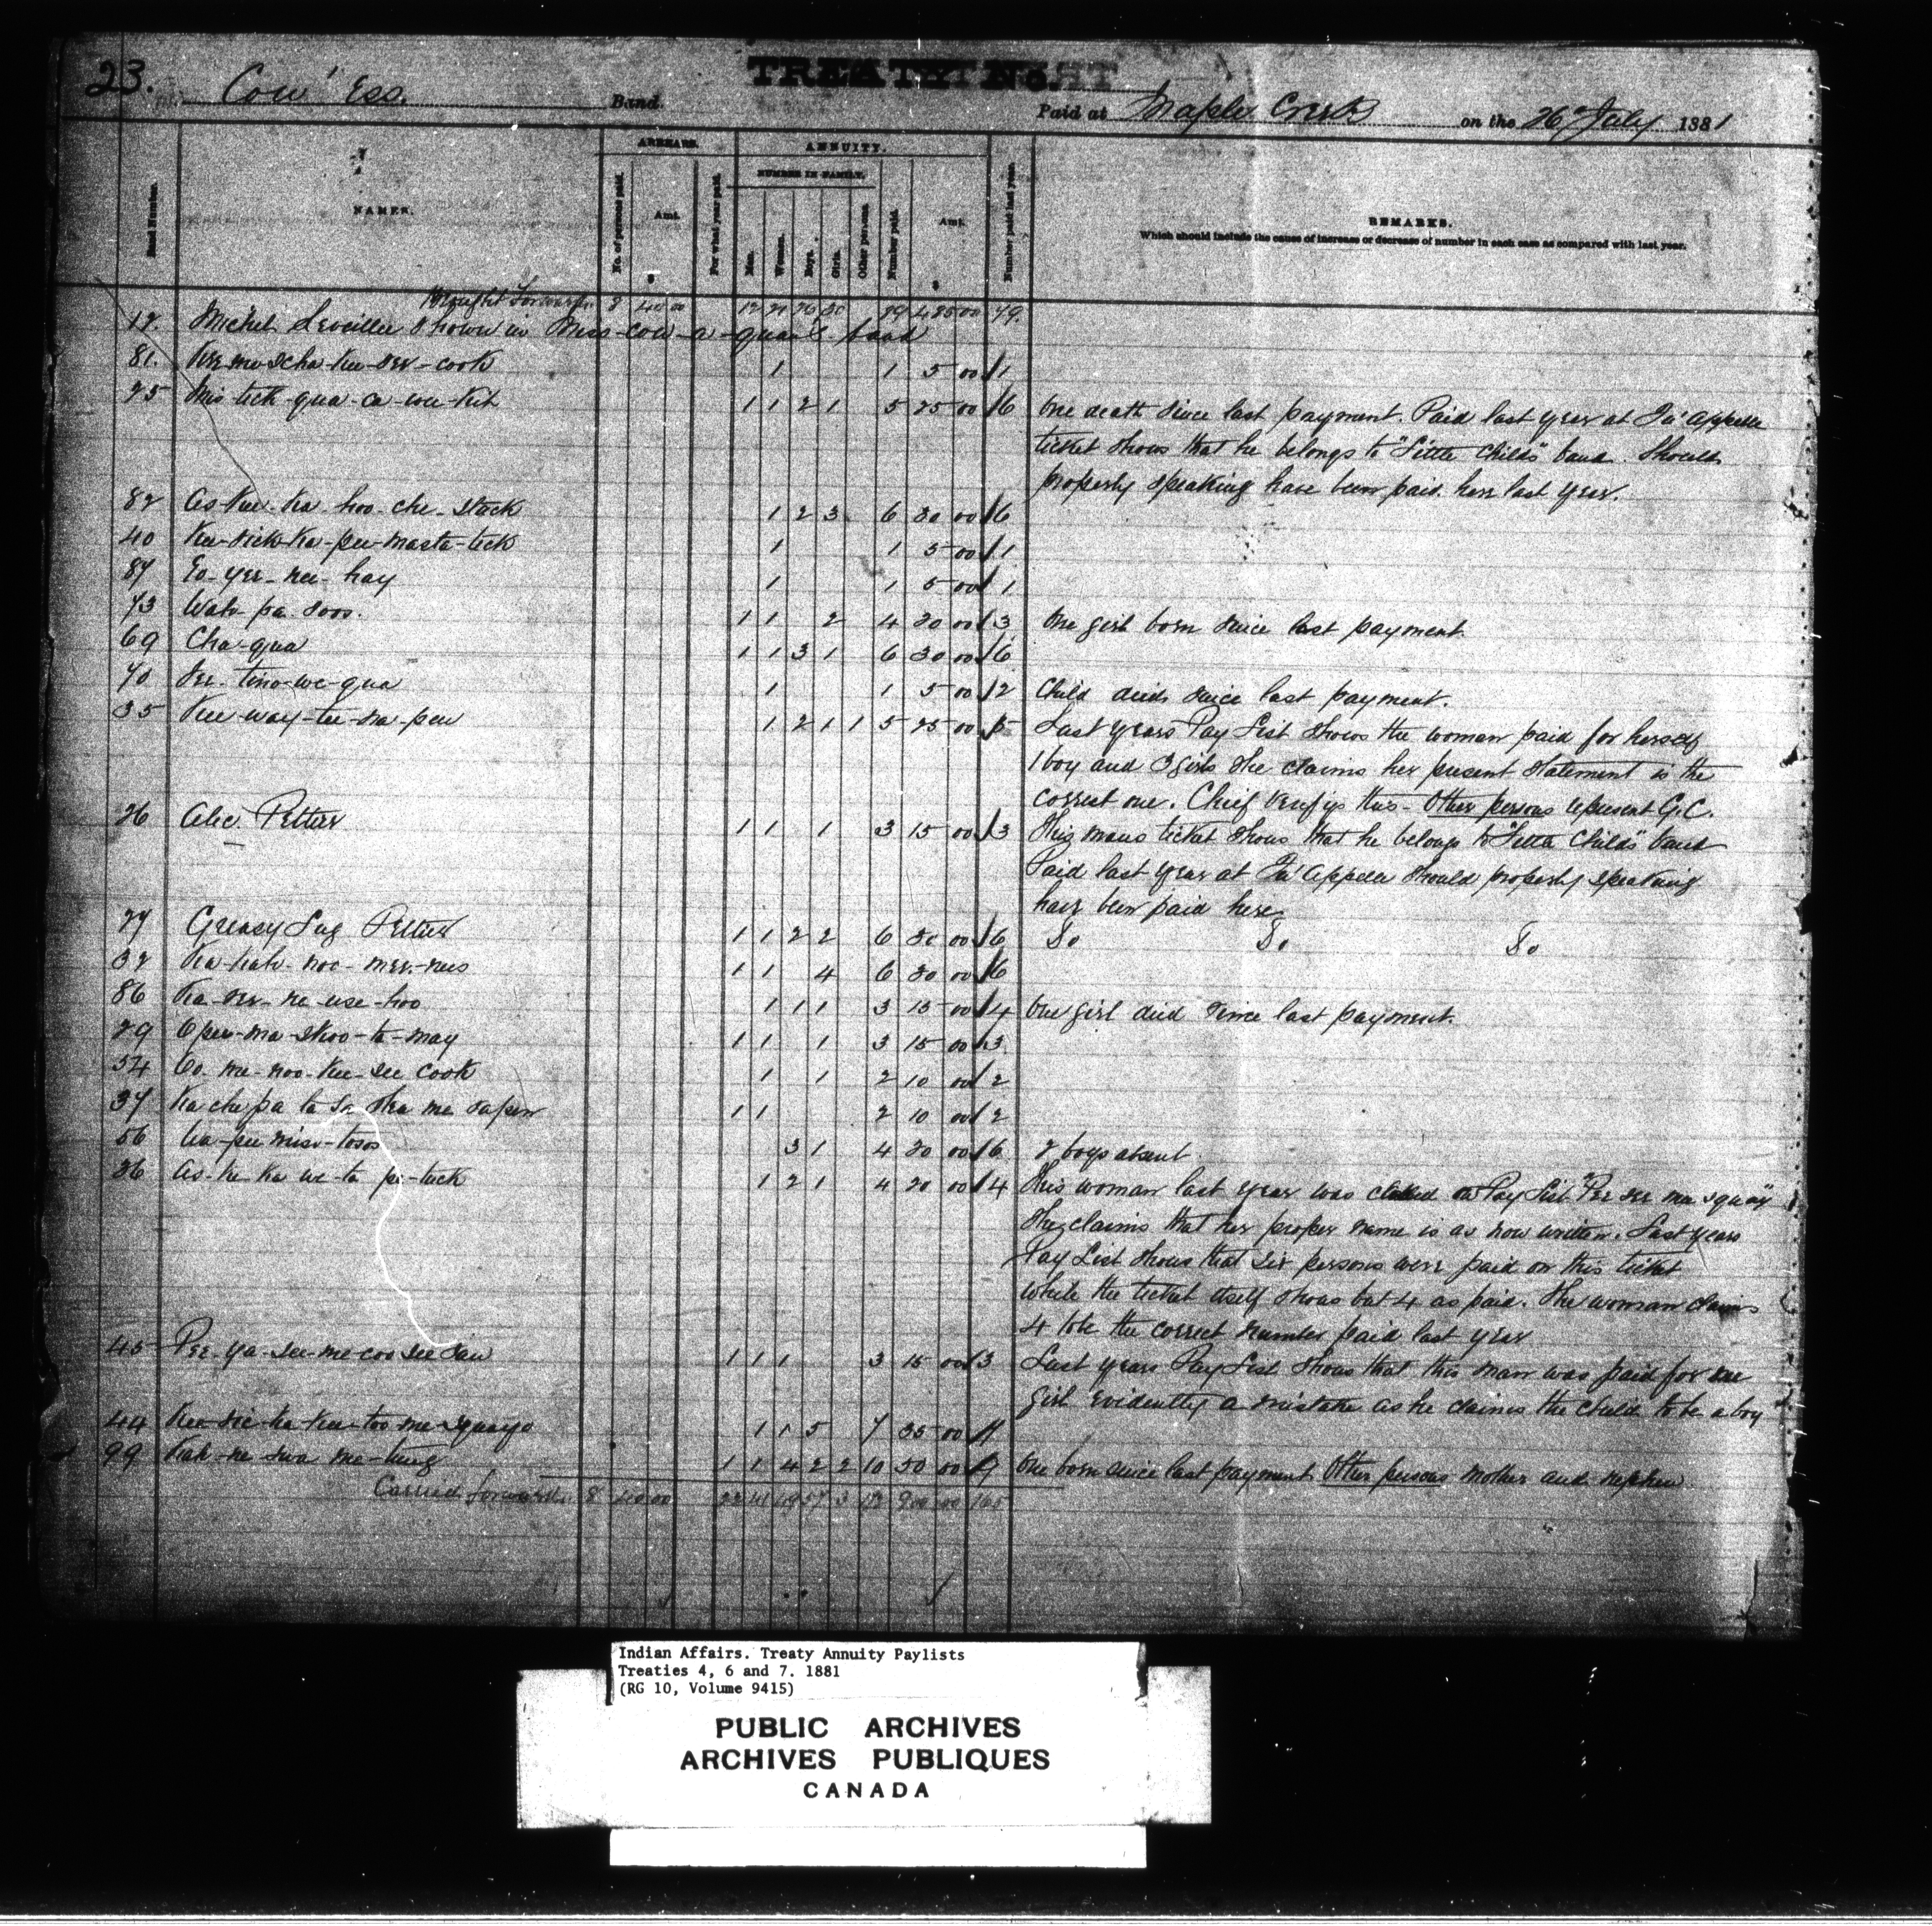 23.
Cow' Ess. Band.
TREATY No.
Paid at Maple Creek on the 26 July 1881
ARREARS. ANNUITY.
NUMBER IN FAMILY.
Band Number. NAMES. No. of persons paid. Amt. For what year paid. Men. Women. Boys. Girls. Other persons. Number paid. Amt. Number paid last year. REMARKS.
Which should include the cause of increase or decrease of number in each case as compared with last year.
$ $
Brought Forward 8 40 00 79.
12. Michel Leveille Shown in band
81. cook 1 1 5 00 1
25 Mis-tick-qua-ca-wee-kit 1 1 2 1 5 25 00 6 One death since last payment. Paid last year at Qu'appelle
ticket shows that he belongs to "Little Childs" band. Should
properly speaking have been paid here last year.
82 As-kee-ka-hoo-che-stick 1 2 3 6 30 00 6
40 Kee-sick-ka-pee-masta-tick 1 1 5 00 1
87 hay 1 1 5 00 1
73 Wah-pa-soos. 1 1 2 4 20 00 3 One girl born since last payment.
69 Cha-qua 1 1 3 1 6 30 00 6
70 1 1 5 00 2 Child died since last payment.
35 Kee-way-tee-na-pew 1 2 1 1 5 25 00 5 Last years Pay List shows the woman paid for herself
1 boy and 3 girls She claims her present statement is the
correct one. Chief verifys this - Other persons represent G.C.
26 Alec. Peltier 1 1 1 3 15 00 3 This mans ticket shows that he belongs to "Little Childs" band
Paid last year at Qu'appelle should properly speaking
have been paid here
27 Greasy Peltier 1 1 2 2 6 30 00 6 Do Do Do
32 1 1 4 6 30 00 6
86 1 1 1 3 15 00 4 One girl died since last payment.
29 Opee-ma-skoo-ta-may 1 1 1 3 15 00 3
54 cook 1 1 2 10 00 2
37 1 1 2 10 00 2
56 3 1 4 20 00 6 2 boys absent
36 As-ke-ka-we-ta-pe-tuck 1 2 1 4 20 00 4 This woman last year was called on Pay List
She claims that her proper name is as now written. Last years
Pay List shows that six persons were paid on this ticket
while the ticket itself shows but 4 as paid. The woman claims
4 to be the correct number paid last year
45 Pee-ya-see-me-coo-see-saw 1 1 1 3 15 00 3 Last years Pay List shows that this man was paid for one
girl evidently a mistake as he claims the child to be a boy
44 1 1 5 7 35 00
99 Kah-ne-swa-me-tung 1 1 4 2 2 10 50 00 One born since last payment Other persons Mother and nephew
Carried forward 8 40 00 165
Indian Affairs. Treaty Annuity Paylists
Treaties 4, 6 and 7. 1881
(RG 10, Volume 9415)
PUBLIC ARCHIVES
ARCHIVES PUBLIQUES
CANADA